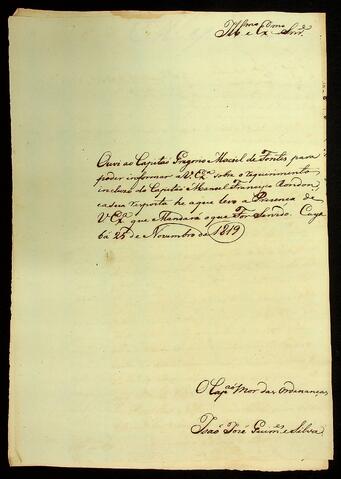 Illmo e Exmo Snr.
Ouvi ao Capitão Gregorio Maciel de Fontes para
poder informar a V. Exª sobre o requerimento
incluso do Capitão Manoel Francisco Rondon,
e a sua reposta he a que levo a Prezença de
V. Exª que Mandará o que For Servido. Cuya
bá 25 de Novembro de 1819
O Capªº Mor das Ordenanças
João José Guimes e Silva